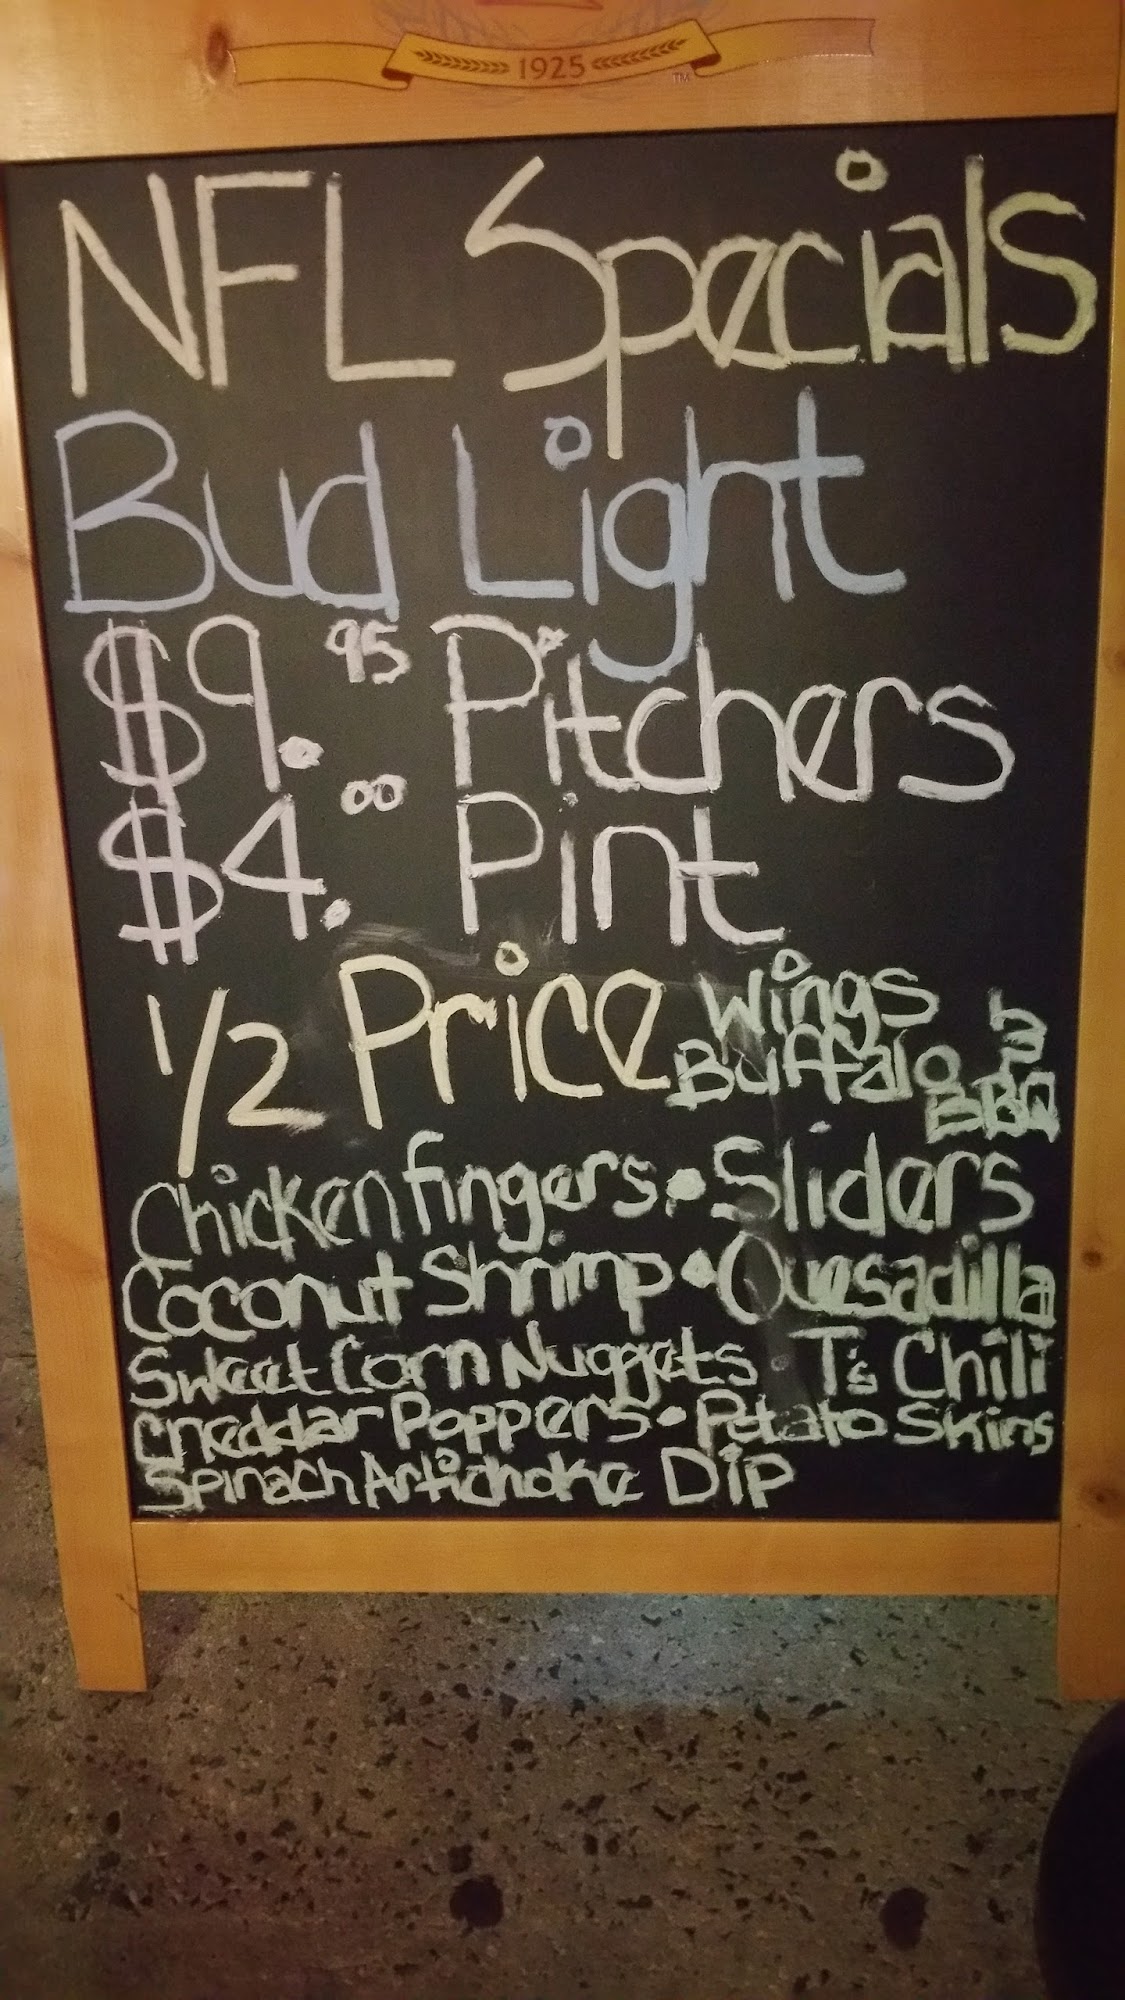 1925
TM
NFL Specials
Bud Light
$9.95 Pitchers
$4.00 Pint
1/2 Price Wings
Buffalo
BBQ
Chicken fingers • Sliders
Coconut Shrimp • Quesadilla
Sweet Corn Nuggets T's Chili
Cheddar Poppers • Potato Skins
Spinach Artichoke Dip